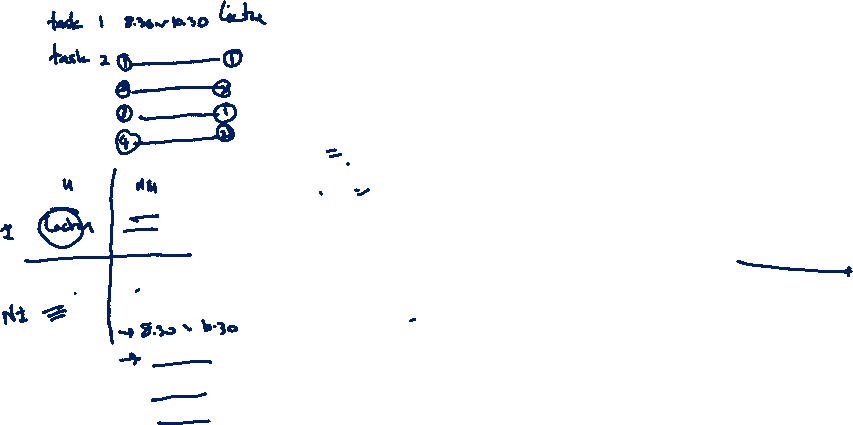 task 1 8.30 ~ 10.30 Lecture
task 2 1 1
3 2
2 1
4 2
U NU
I Lecture
NI
→ 8.30 ~ 10.30
→